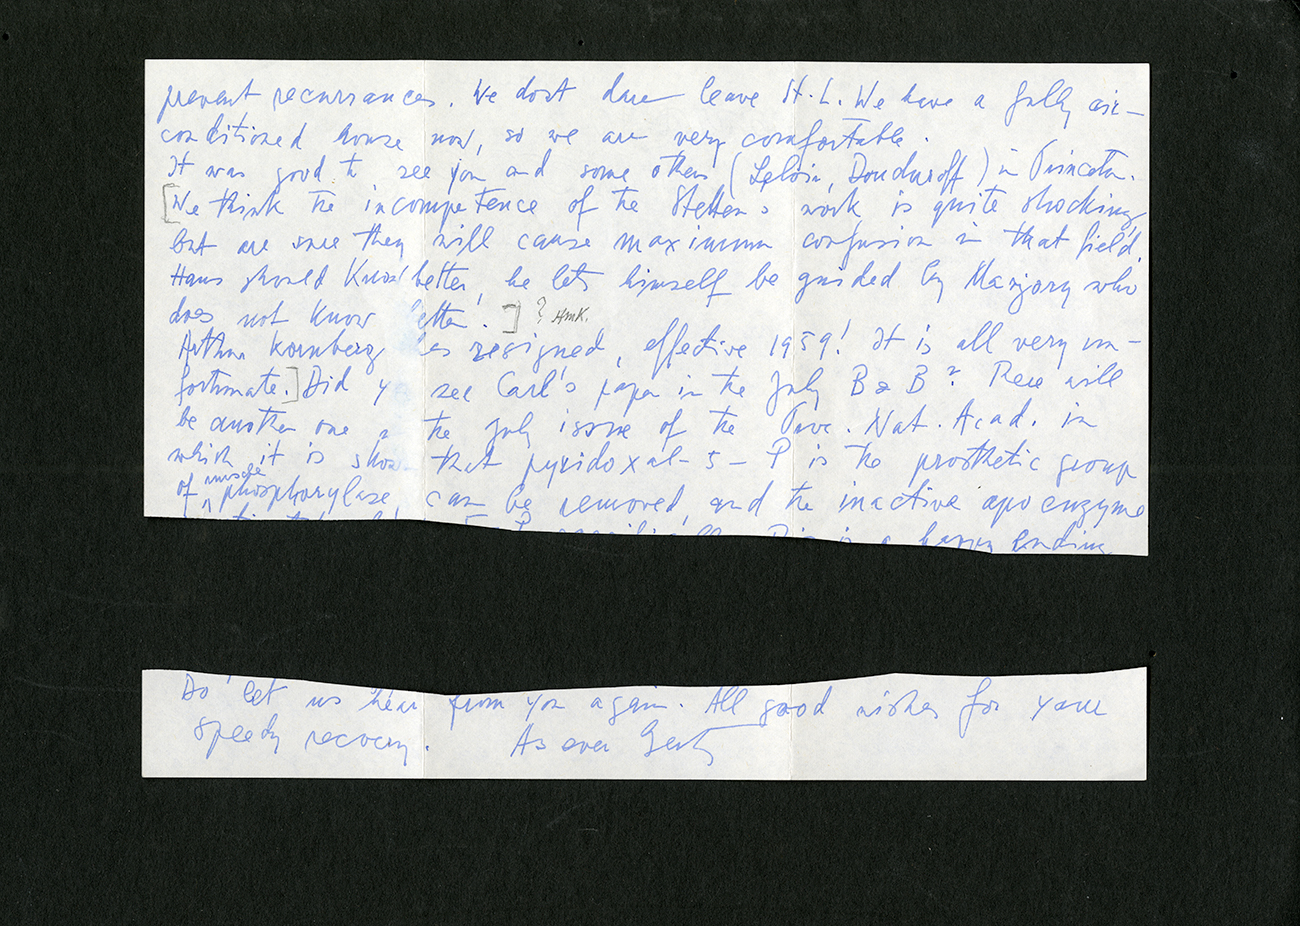 prevent recurrances. We don't dare leave St. L. We have a fully air-
conditioned house now, so we are very comfortable.
It was good to see you and some others (Leloir, Doudoroff) in Princeton.
[We think the incompetence of the Stettens work is quite shocking,
but are sure they will cause maximum confusion in that field.
Hans should know better, he lets himself be guided by Marjory who
does not know better.] ? HMK.
Arthur Kornberg has resigned, effective 1959! It is all very un-
fortunate.] Did you see Carl's paper in the July B & B? There will
be another one in the July issue of the Proc. Nat. Acad. in
which it is shown that pyridoxal-5-P is the prosthetic group
of muscle phosphorylase, can be removed, and the inactive apoenzyme
is a happy ending
Do let us hear from you again. All good wishes for your
speedy recovery. As ever Gerty